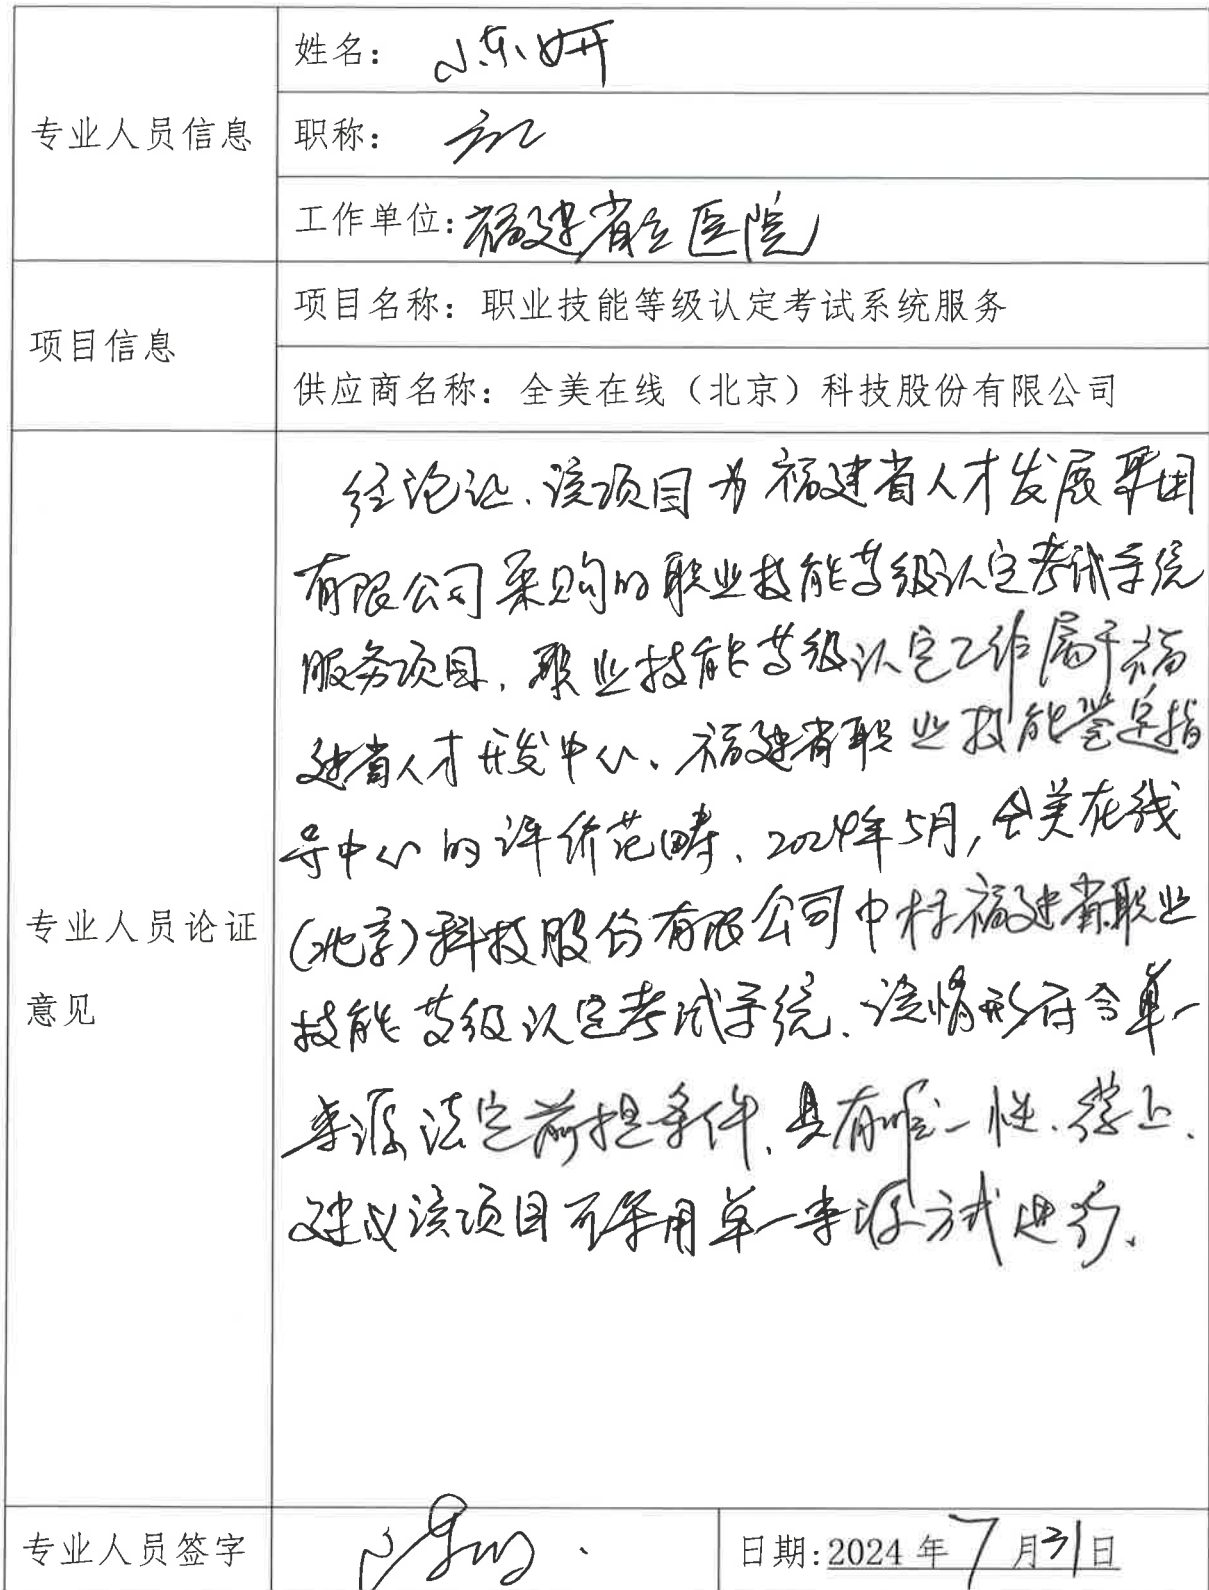 专业人员信息
姓名：陈妍
职称：
工作单位：福建省立医院
项目信息
项目名称：职业技能等级认定考试系统服务
供应商名称：全美在线（北京）科技股份有限公司
专业人员论证
意见
经论证，该项目为福建省人才发展集团
有限公司采购的职业技能等级认定考试系统
服务项目，职业技能等级认定工作属于福
建省人才开发中心、福建省职业技能鉴定指
导中心的评价范畴、2024年5月，全美在线
(北京)科技股份有限公司中标福建省职业
技能等级认定考试系统、该情形符合单一
来源法定前提条件，具有唯一性、综上、
建议该项目可采用单一来源方式进行、
专业人员签字
日期：2024年7月31日